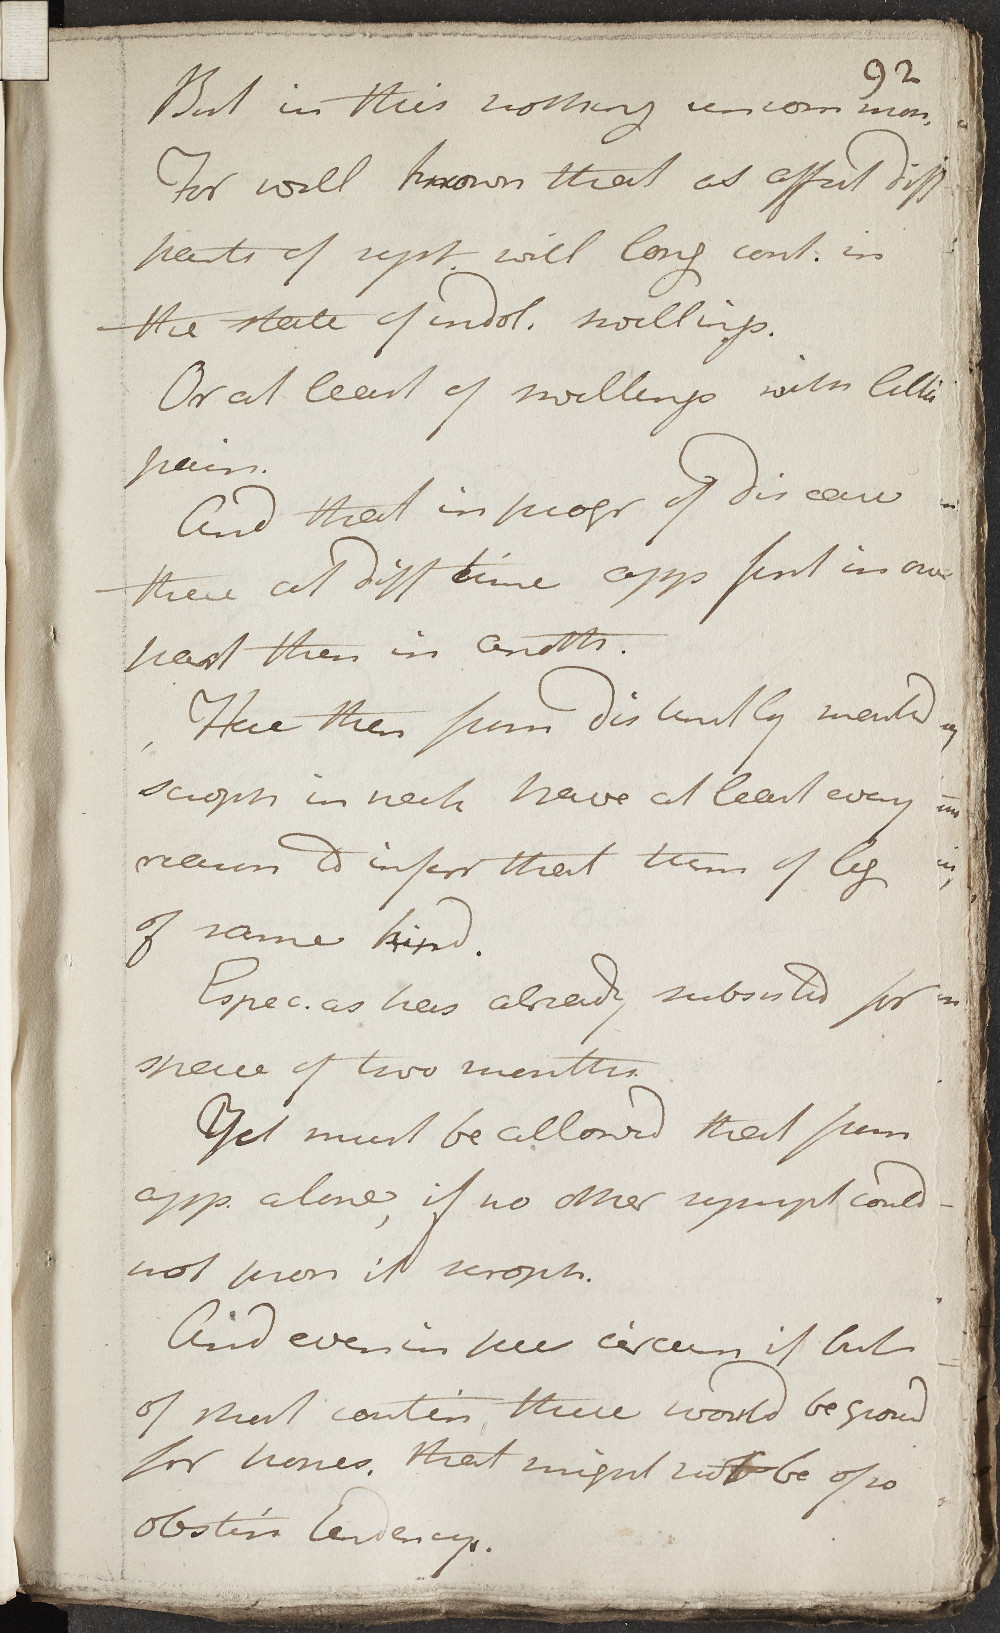 92
But in this nothing uncommon.
For well known that as affect diff
parts of syst. will long cont. in
the state of indol. swellings.
Or at least of swellings with little
pain.
And that in progr of disease
there at diff time app first in one
part then in anoth.
Here then from distinctly marked
scroph in neck have at least every
reason to infer that tum of leg
of same kind.
Espec. as has already subsisted for
space of two months
Yet must be allowed that from
app. alone, if no other sympt could
not pron it scroph.
And even in pres circum if but
of short contin there would be ground
for hopes. that might not be of so
obstin tendency.